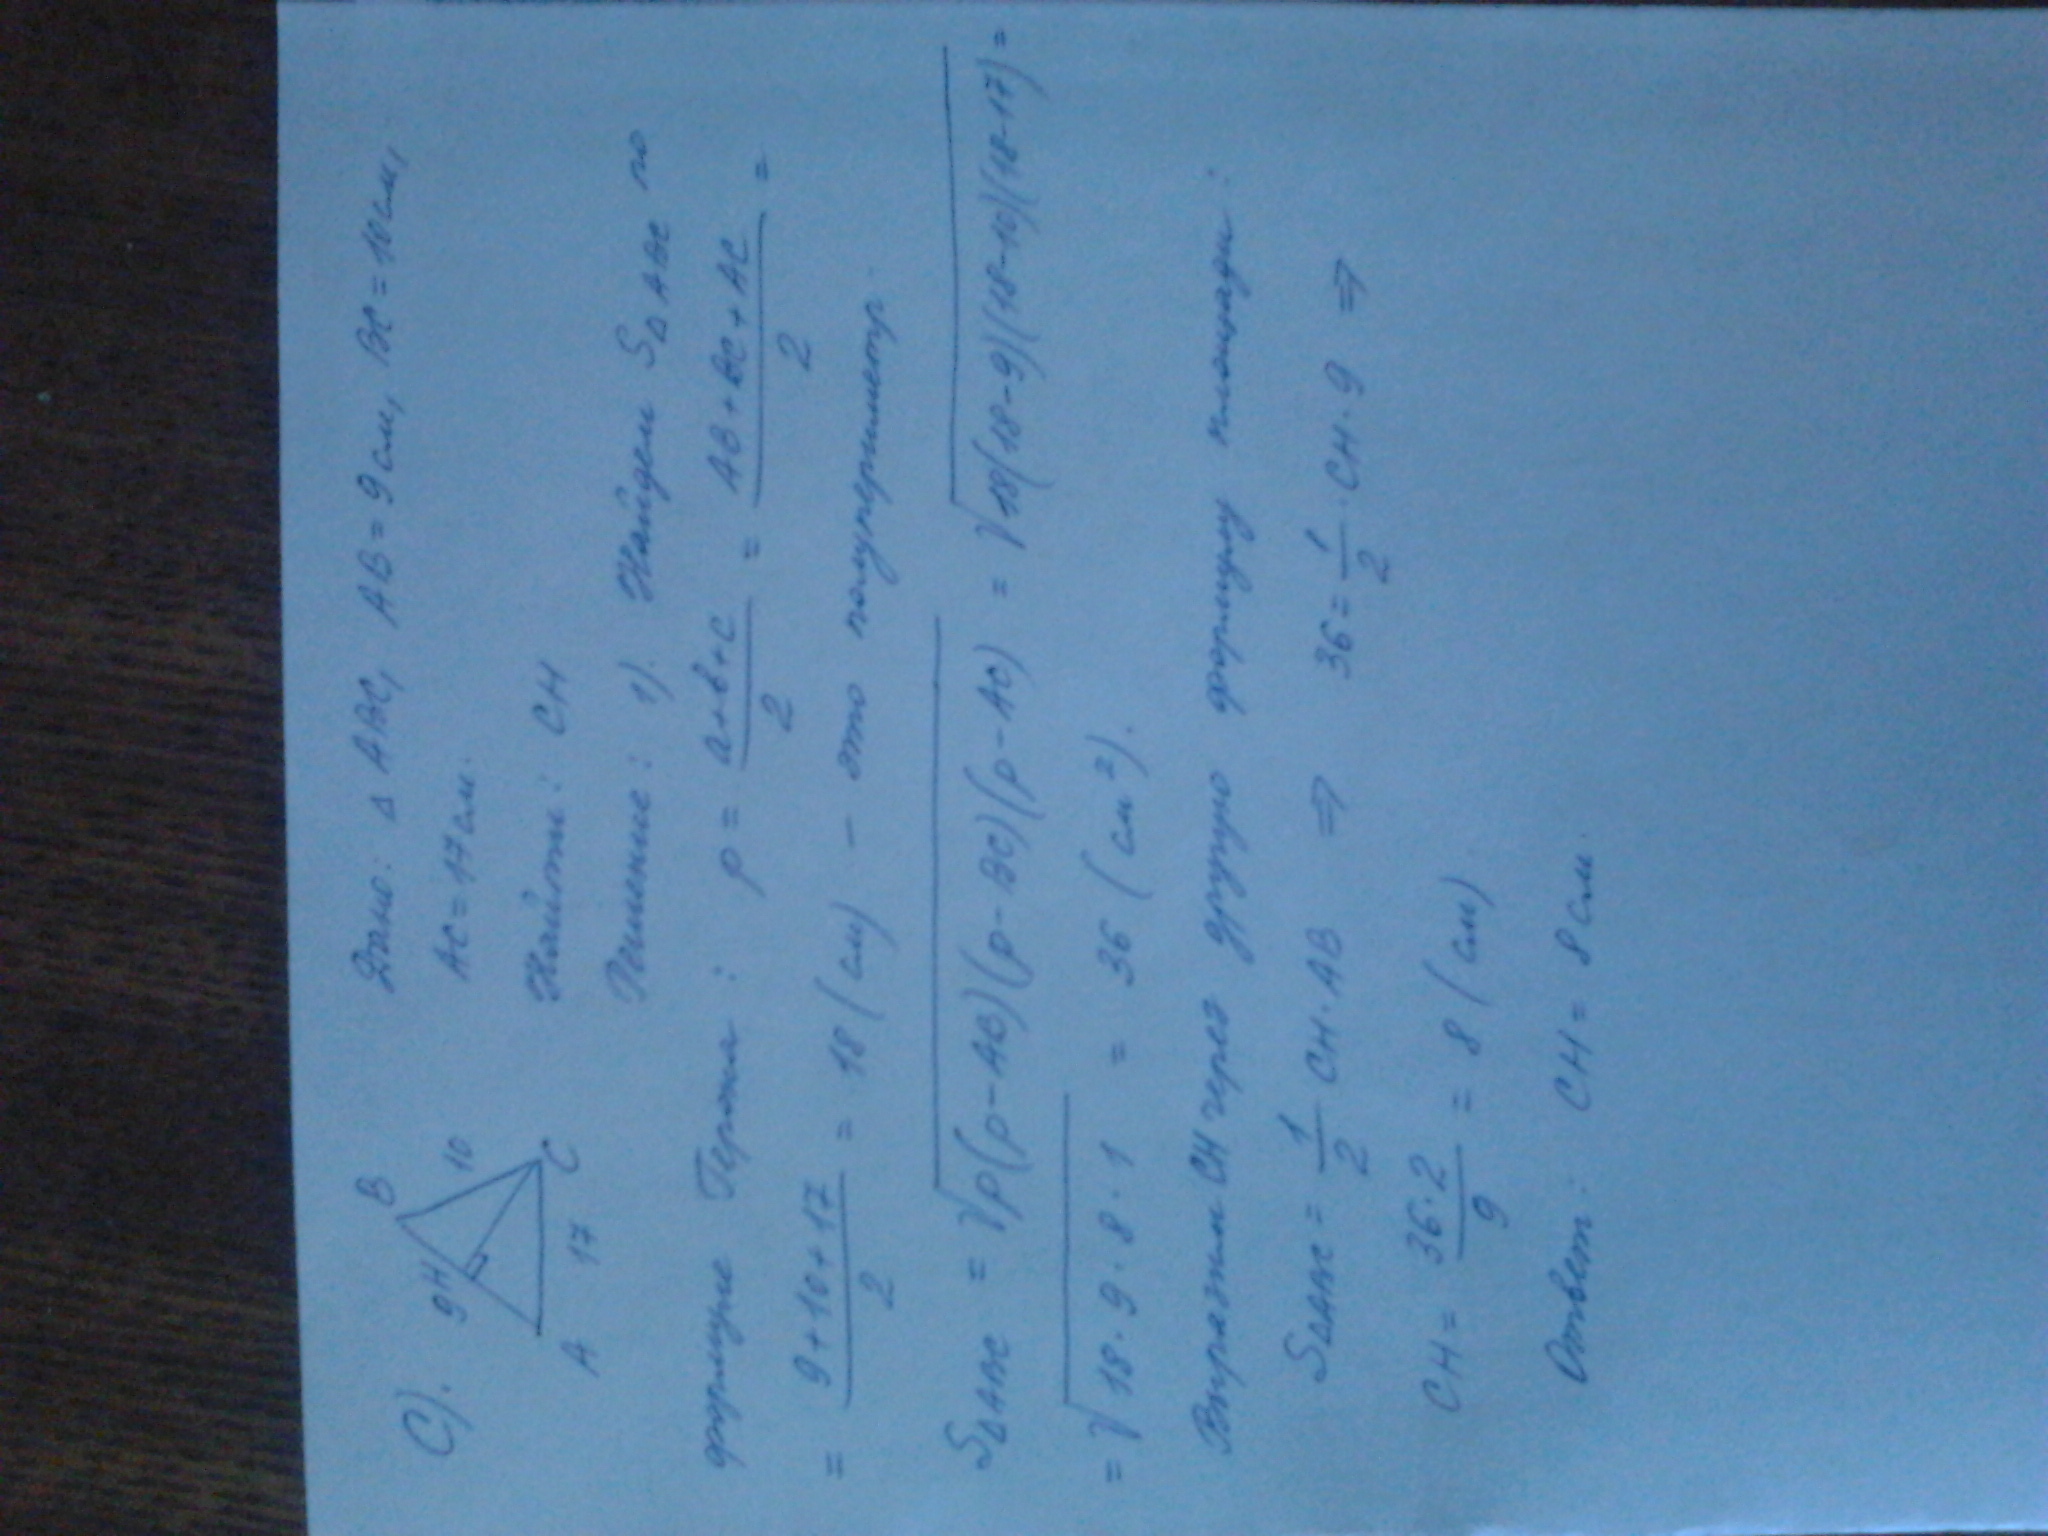 C).
B
9 H
10
A 17 C
Дано: Δ ABC, AB = 9 см, BC = 10 см,
AC = 17 см.
Найти: CH
Решение: 1). Найдем S Δ ABC по
формуле Герона: p = a+b+c / 2 = AB + BC + AC / 2 =
= 9+10+17 / 2 = 18 (см) - это полупериметр.
S ΔABC = √p(p-AB)(p-BC)(p-AC) = √18(18-9)(18-10)(18-17) =
= √18·9·8·1 = 36 (см²).
Выразим CH через другую формулу площади:
S ΔABC = 1/2 CH·AB ⇒ 36 = 1/2 · CH · 9 ⇒
CH = 36·2 / 9 = 8 (см)
Ответ: CH = 8 см.